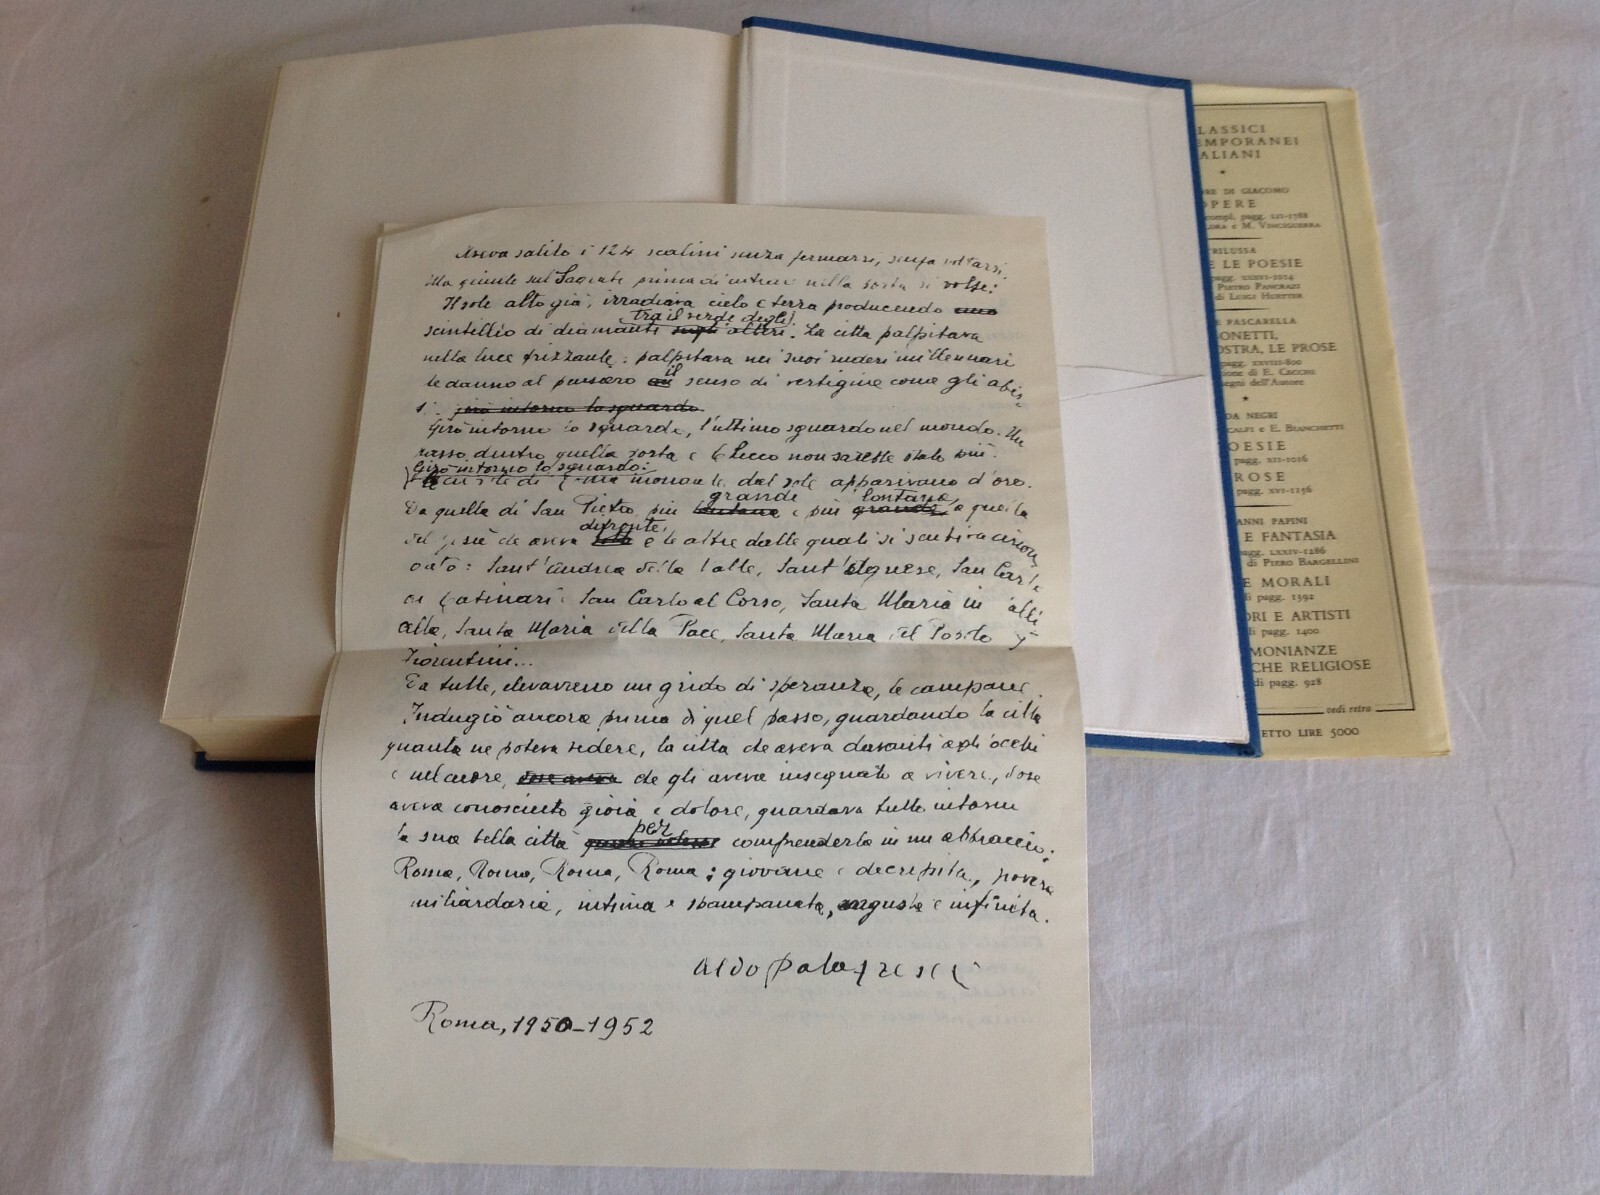 Aveva salito i 124 scalini senza fermarsi, senza voltarsi.
Ma giunto sul Sagrato prima di entrare nella porta si volse:
Il sole alto già, irradiava cielo e terra producendo uno
tra il verde degli
scintillio di diamanti sugli alberi. La città palpitava
nella luce frizzante: palpitava nei suoi ruderi millennari
il
che danno al pensiero un senso di vertigine come gli abis-
si. girò intorno lo sguardo
Girò intorno lo sguardo, l'ultimo sguardo nel mondo. Un
passo dentro quella porta e non sarebbe stato più.
Girò intorno lo sguardo:
di Roma inondate dal sole apparivano d'oro.
grande lontana
Da quella di San Pietro più lontana e più grande, a quella
difronte,
del Gesù che aveva e le altre dalle quali si sentiva circon
dato: Sant'Andrea della Valle, Sant'Agnese, San Carlo
ai Catinari, San Carlo al Corso, Santa Maria in Valli
cella, Santa Maria della Pace, Santa Maria del Popolo
Fiorentini...
Da tutte, elevavano un grido di speranza, le campane.
Indugiò ancora prima di quel passo, guardando la città
quanta ne poteva vedere, la città che aveva davanti agli occhi
e nel cuore, dove aveva che gli aveva insegnato a vivere, dove
aveva conosciuto gioia e dolore, guardava tutto intorno
per
la sua bella città comprenderla in un abbraccio:
Roma, Roma, Roma, Roma: giovane e decrepita, povera
miliardaria, intima e spampanata, angusta e infinita.
Aldo Palazzeschi
Roma, 1950-1952
LASSICI
EMPORANEI
ALIANI
RE DI GIACOMO
OPERE
compl. pagg. 121-1788
LORA e M. VINCIGUERRA
TRILUSSA
E LE POESIE
pagg. XXXVI-2024
PIETRO PANCRAZI
di LUIGI HUETTER
E PASCARELLA
SONETTI,
OSTRA, LE PROSE
pagg. XXVIII-800
ione di E. CECCHI
segni dell'Autore
DA NEGRI
CALFI e E. BIANCHETTI
OESIE
pagg. XII-1016
ROSE
pagg. XVI-1156
ANNI PAPINI
E FANTASIA
agg. LXXIV-1286
di PIERO BARGELLINI
E MORALI
pagg. 1392
ORI E ARTISTI
di pagg. 1400
MONIANZE
CHE RELIGIOSE
di pagg. 928
vedi retro
ETTO LIRE 5000